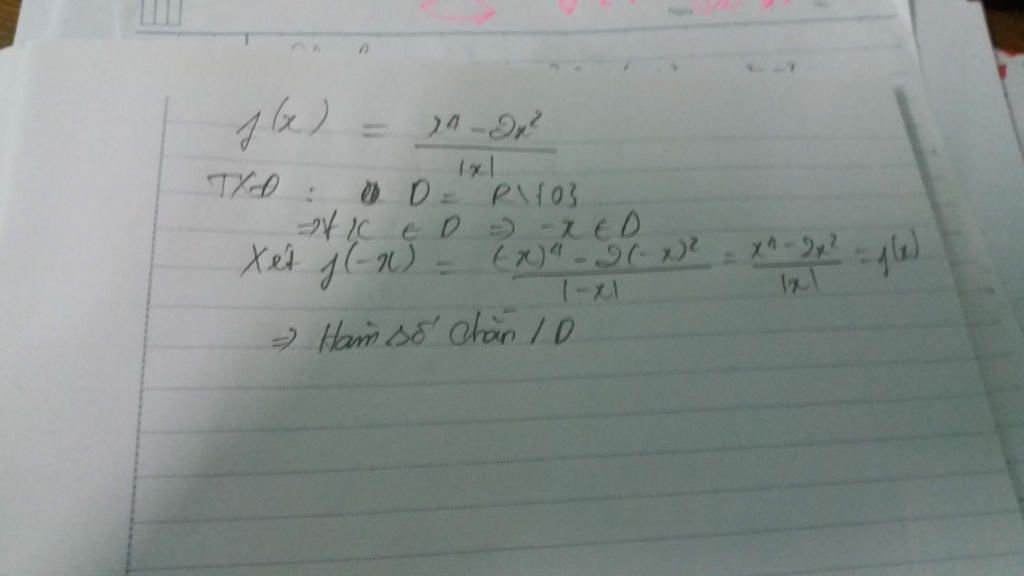 f(x) = \frac{x^4 - 2x^2}{|x|}
TXĐ : D = R\{0}
⇒ ∀ x ∈ D ⇒ -x ∈ D
Xét f(-x) = \frac{(-x)^4 - 2(-x)^2}{|-x|} = \frac{x^4 - 2x^2}{|x|} = f(x)
⇒ Hàm số chẵn / D